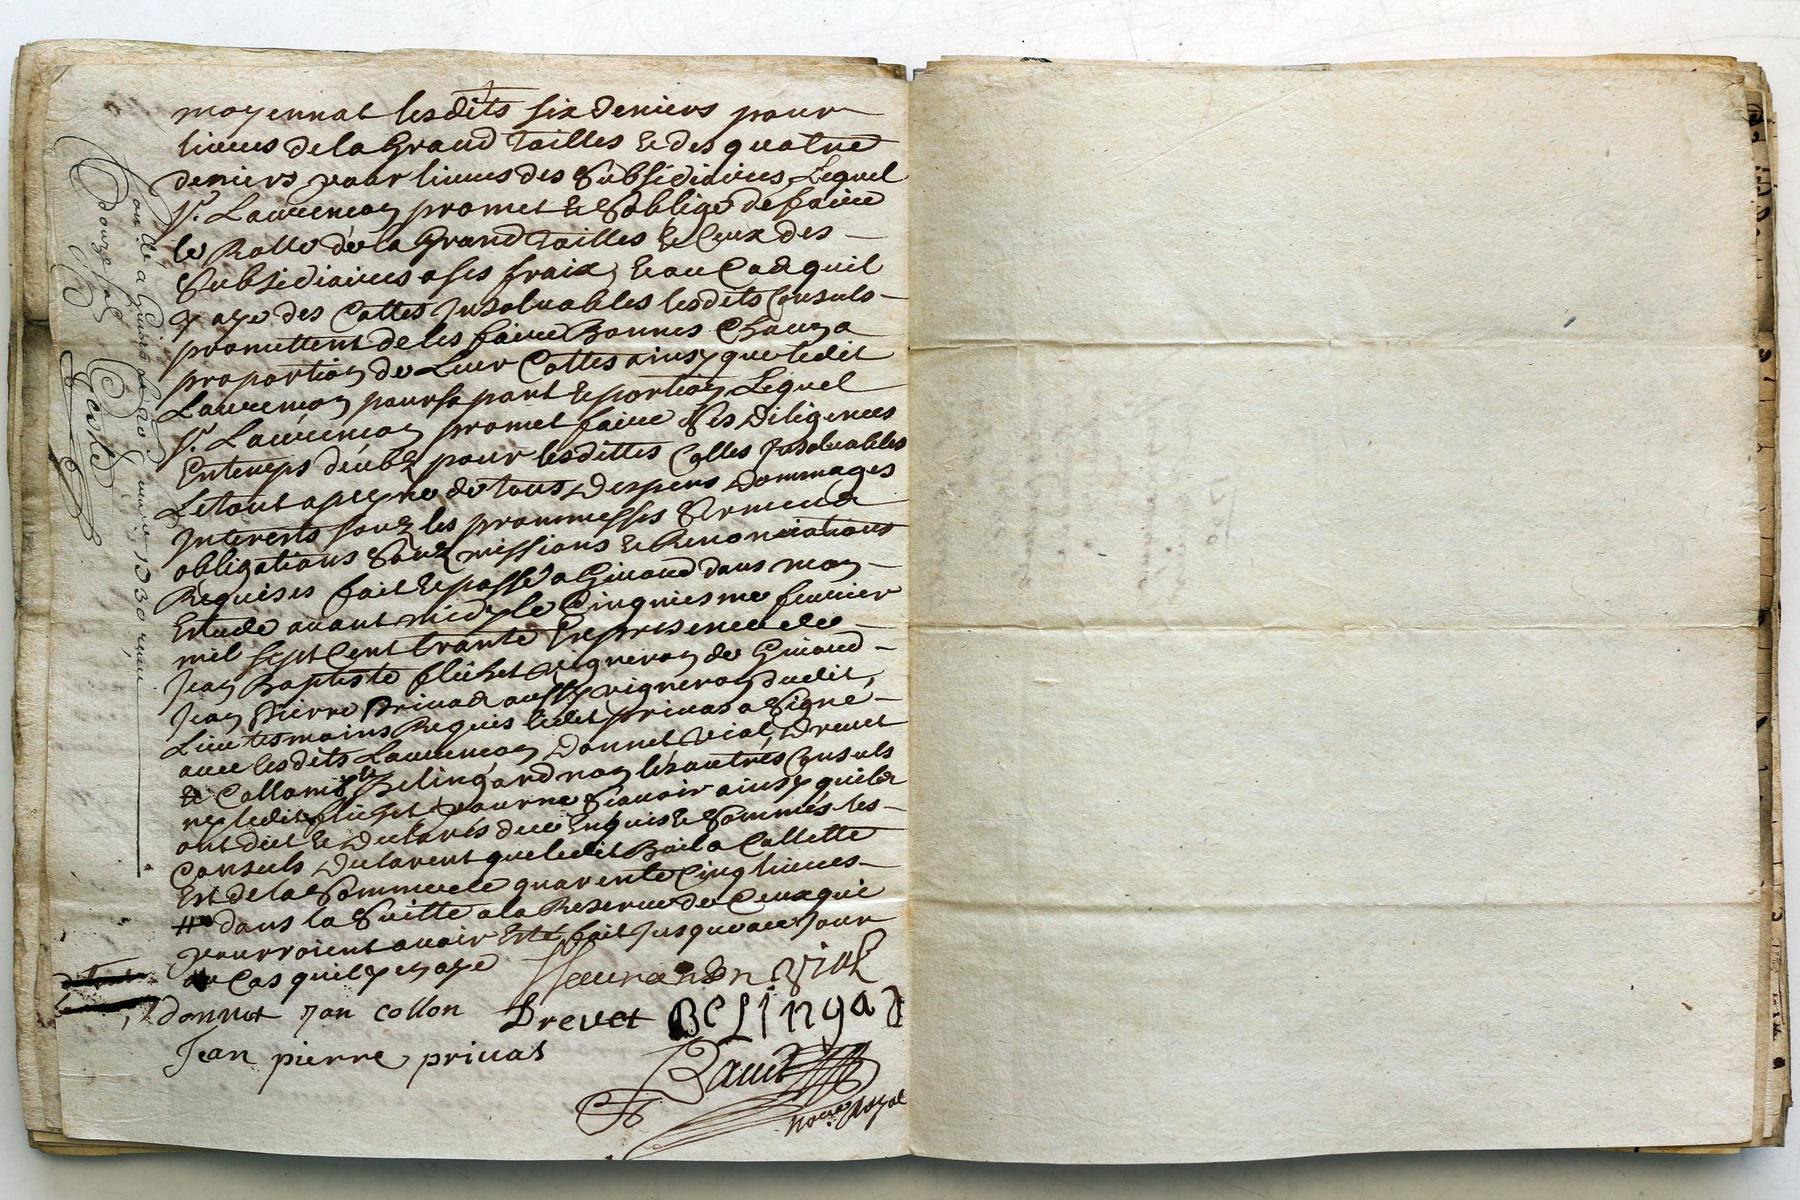 moyennat lesdits six deniers pour
liures de la Grand Tailles & des quatre
deniers pour liures des Subsidiaires Lequel
Sr. Laurencon promet & Soblige de faire
le Rolle de la Grand Tailles & Ceux des
Subsidiaires a ses fraix, & au Cas quil
y aye des Cottes Insoluables lesdits Consuls
promettent de les faire Bonnes Chacun a
proportion de Leur Cottes ainsy que ledit
Laurencon pour sa part & portion Lequel
Sr. Laurencon promet faire Ses Diligences
En temps deub pour lesdittes Cottes Insoluables
Le tout a peyne de tous Despens Dommages
Interests soub les prommesses Serment
obligations Soubmissions & Renonciations
Requises fait & passé a Giuord dans mon
Estude auant midy le Cinquiesme feurier
mil sept Cent trante En presence de
Jean Baptiste flichet vigneron de Giuord
Jean Pierre Priuas aussy vigneron dudit
Lieu tesmoins Requis ledit priuas a Signé
auec lesdits Laurencon Donnet Vial, Dreuet
& Collon & Belingard non les autres Consuls
ny ledit flichet pour ne Scauoir ainsy quils
ont dit & Declarés de ce Enquis & Sommés les
Consuls Declarent que ledit Bail a Collette
Est de la Somme de quarente Cinq liures
dans la Suitte a la Reserue de Ceux qui
pourroient auoir Esté fait Jusqua ce Jour
au Cas quil y en aye
Laurancon Vial
donnot Jan collon Drevet BeLingard
Jean pierre priuas
Not.re Royal